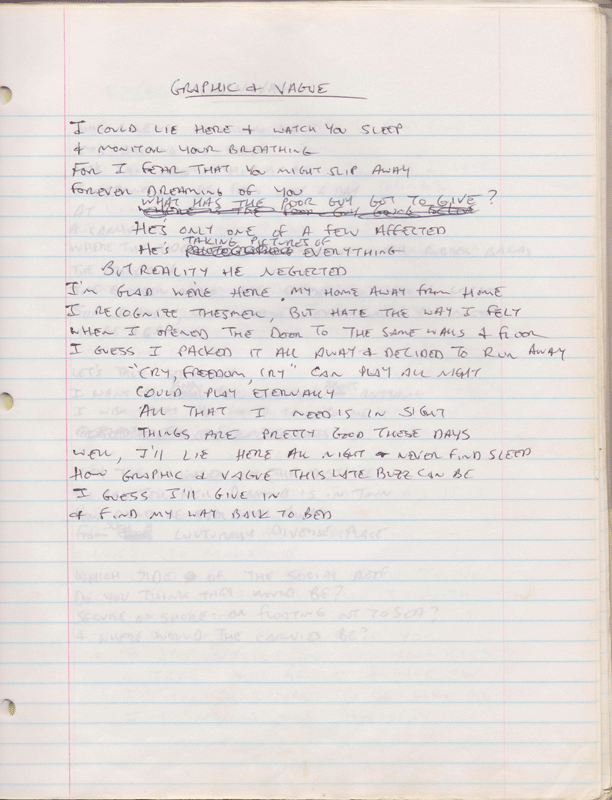 GRAPHIC & VAGUE
I COULD LIE HERE & WATCH YOU SLEEP
& MONITOR YOUR BREATHING
FOR I FEAR THAT YOU MIGHT SLIP AWAY
FOREVER DREAMING OF YOU
WHAT HAS THE POOR GUY GOT TO GIVE?
HE'S ONLY ONE OF A FEW AFFECTED
TAKING PICTURES OF
HE'S EVERYTHING
BUT REALITY HE NEGLECTED
I'M GLAD WE'RE HERE, MY HOME AWAY FROM HOME
I RECOGNIZE THE SMELL, BUT HATE THE WAY I FELT
WHEN I OPENED THE DOOR TO THE SAME WALLS & FLOOR
I GUESS I PACKED IT ALL AWAY & DECIDED TO RUN AWAY
"CRY, FREEDOM, CRY" CAN PLAY ALL NIGHT
COULD PLAY ETERNALLY
ALL THAT I NEED IS IN SIGHT
THINGS ARE PRETTY GOOD THESE DAYS
WELL, I'LL LIE HERE ALL NIGHT & NEVER FIND SLEEP
HOW GRAPHIC & VAGUE THIS LATE BUZZ CAN BE
I GUESS I'LL GIVE IN
& FIND MY WAY BACK TO BED
WHICH SIDE OF THE SOCIAL
DO YOU THINK THEY WOULD BE?
SECURE ON SHORE OR FLOATING OUT TO SEA?
& WHERE WOULD THE BE?